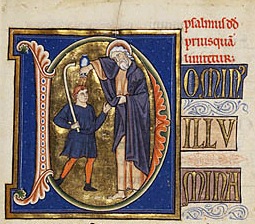 psalmus dd
priusquā
liniretur:
D OMIN'
ILLV
MINA